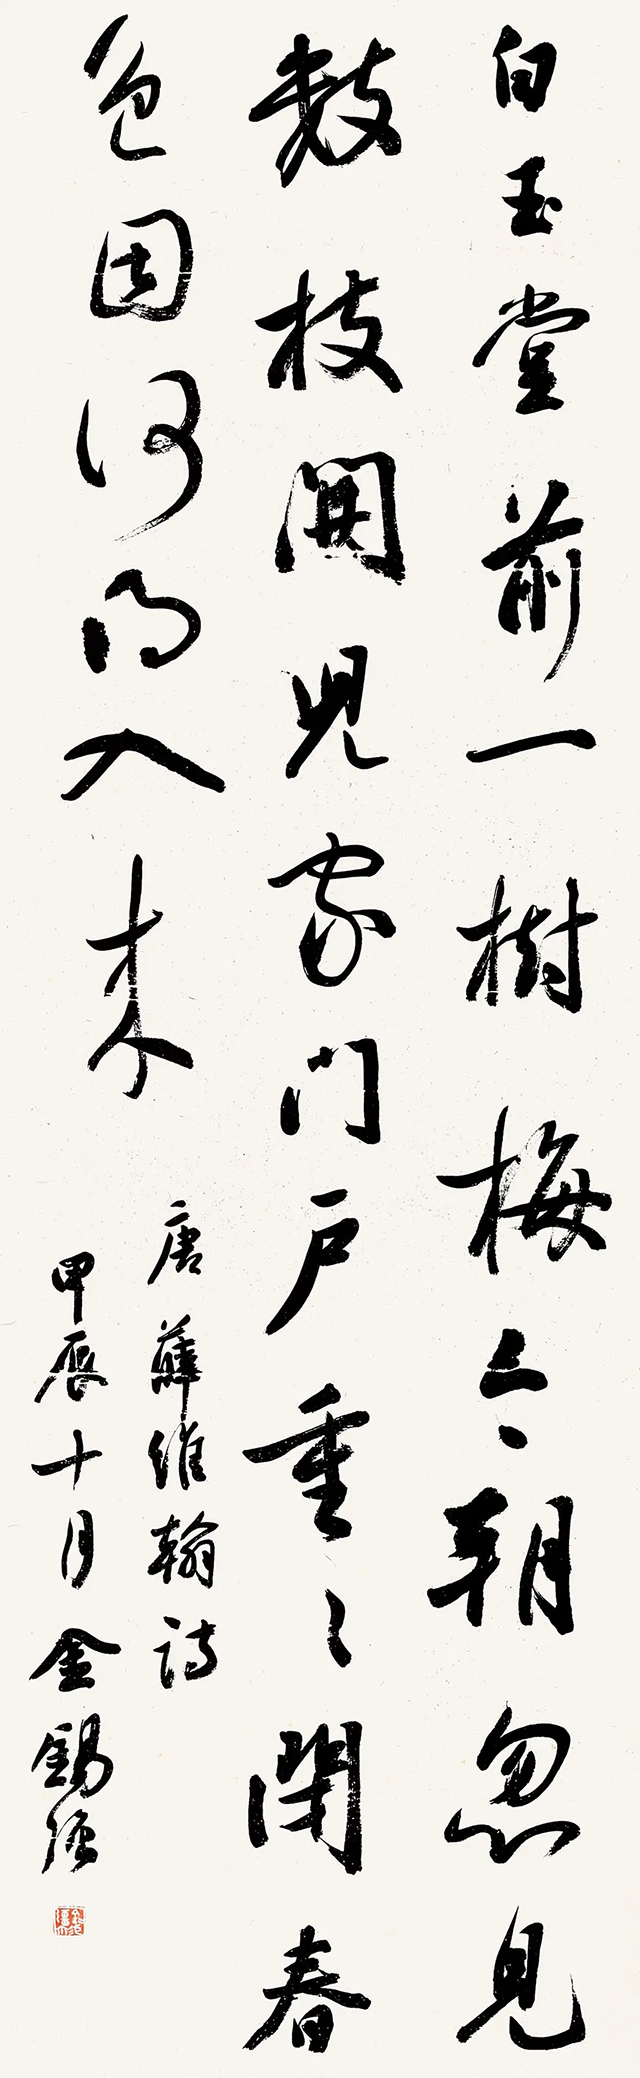 白玉堂前一樹梅今朝忽見
數枝開兒家門戶重〻閉春
色因何得入來
唐薛維翰詩
甲辰十月金錫強